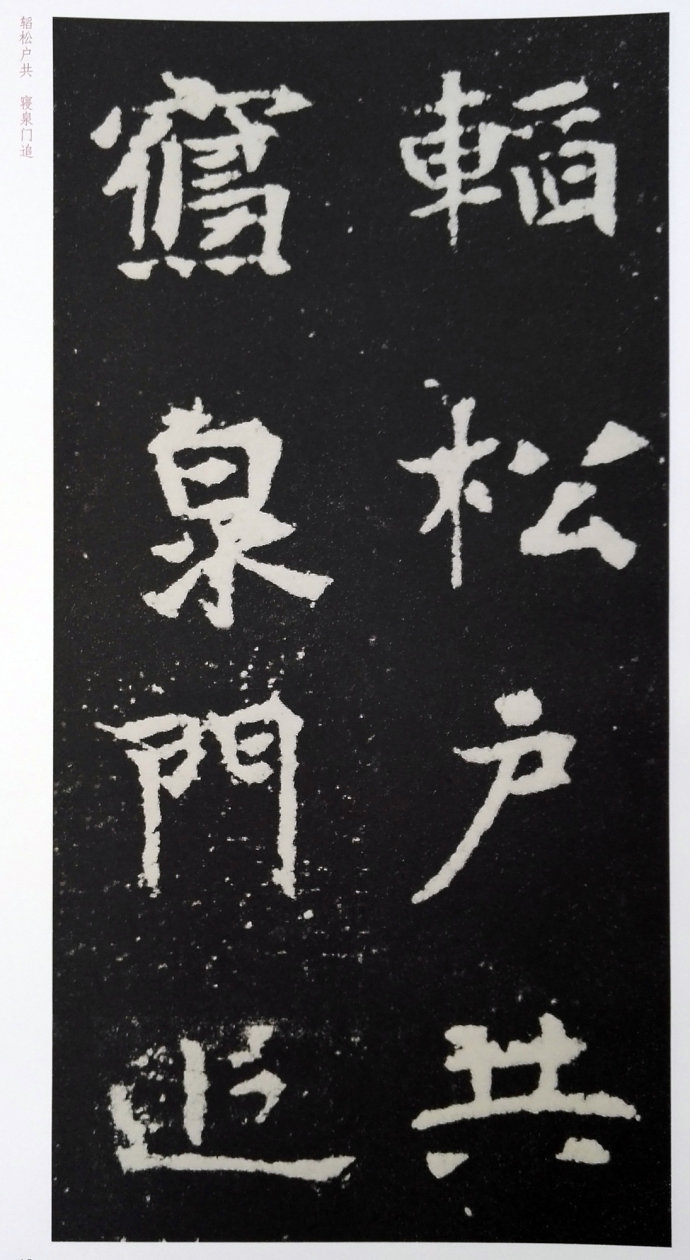 轁松户共
寢泉門追
韬松户共 寝泉门追